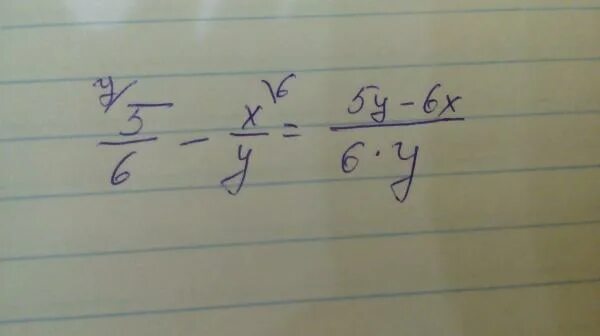 y/5/6 - x\6/y = 5y-6x/6·y